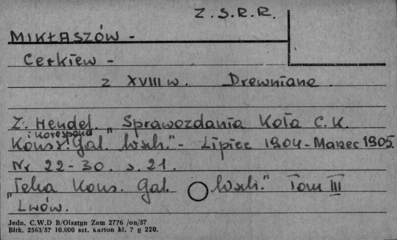 Z.S.R.R.
MIKŁASZÓW -
Cerkiew -
z XVIII w. Drewniana.
Z. Hendel " Sprawozdania Koła C.K.
i korespond.
Kons. Gal. Wsch." - Lipiec 1904 - Marzec 1905.
Nr 22-30. s. 21.
"Teka Kons. Gal. Wsch." Tom III
"Lwów.
Jedn. C.W.D B/Olsztyn Zam 2776 /on/57
Błtk. 2563/57 10.000 szt. karton kl. 7 g 220.